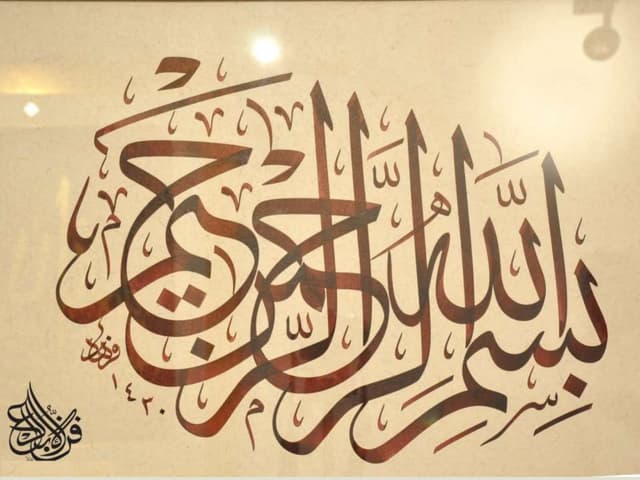 بِسْمِ اللَّهِ الرَّحْمَٰنِ الرَّحِيمِ
١٤٢٠